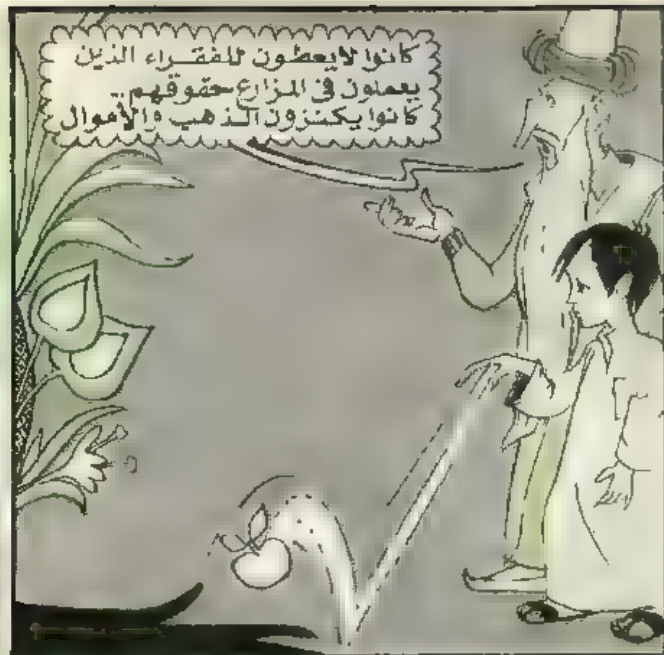 كانوا لا يعطون للفقراء الذين
يعملون فى المزارع حقوقهم..
كانوا يكتنزون الذهب والأموال